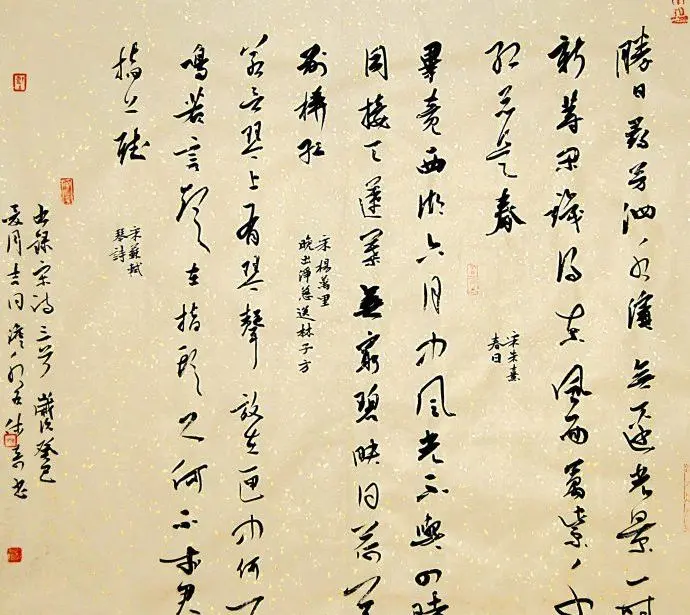 勝日尋芳泗水濱無邊光景一時
新等閒識得東風面萬紫千
紅總是春
宋朱熹
春日
畢竟西湖六月中風光不與四時
同接天蓮葉無窮碧映日荷花
別樣紅
宋楊萬里
晚出淨慈送林子方
若言琴上有琴聲放在匣中何不
鳴若言聲在指頭上何不於君
指上聽
宋蘇軾
琴詩
宋詩三首歲次癸巳
夏月吉日書